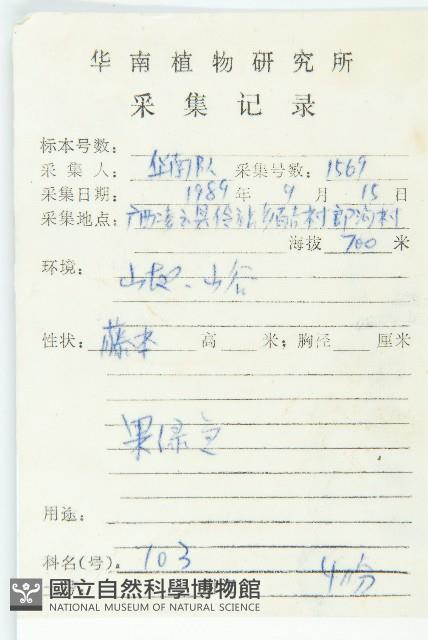 华南植物研究所
采集记录
标本号数：
采集人： 华南队 采集号数： 1569
采集日期： 1989 年 9 月 15 日
采集地点： 广西凌云县伶站乡 村 村
海拔 700 米
环境： 山坡、山谷
性状： 藤本 高 米；胸径 厘米
果绿色
用途：
科名(号)： 103
4份
國立自然科學博物館
NATIONAL MUSEUM OF NATURAL SCIENCE